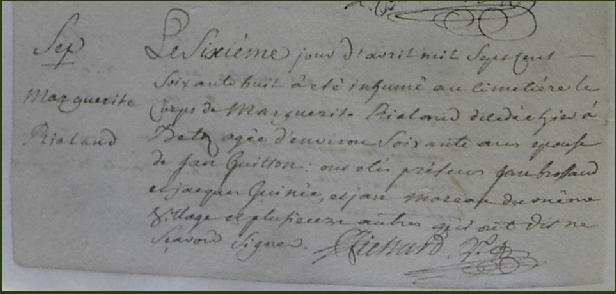 Sep
Marguerite
Rialand
Le Sixiéme jour d'avril mil Sept Cent
Soixante huit à été inhumé au Cimetiére le
Corps de Marguerite Rialand décédée hier à
agée d'environ Soixante ans epouse
de Jan Guitton : ont étés présens Jan
et jacques Guinée, et jan Moreau du même
Village et plusieurs autres qui ont dit ne
Sçavoir Signer.